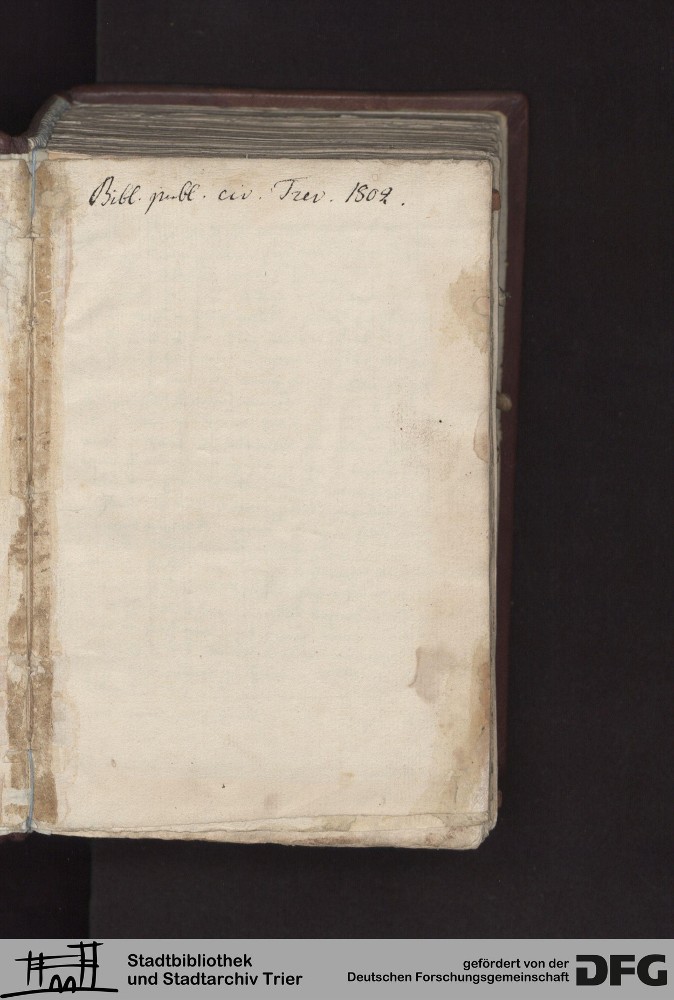 Bibl. publ. civ. Trev. 1802.
Stadtbibliothek
und Stadtarchiv Trier
gefördert von der
Deutschen Forschungsgemeinschaft
DFG